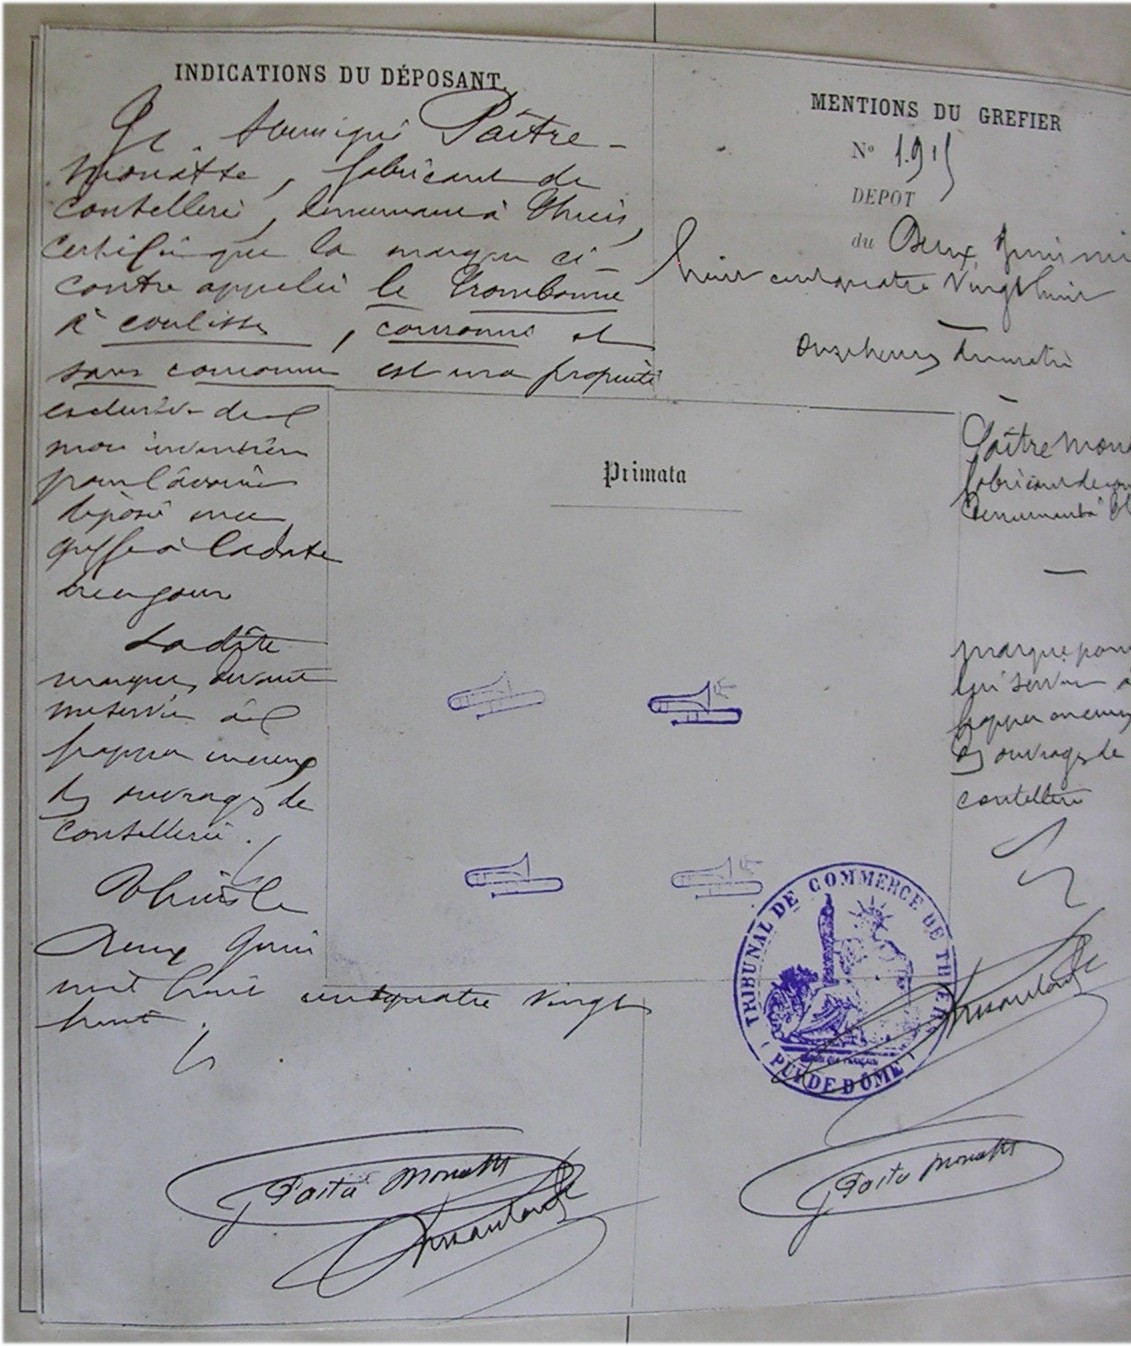 INDICATIONS DU DÉPOSANT
Je soussigné Paître-
Monatte, fabricant de
coutellerie, demeurant à Thiers,
certifie que la marque ci-
contre appelée le trombonne
à coulisse, couronné et
sans couronne est une propriété
exclusive de
mon invention
pour l'avoir
déposé au
greffe à la date
de ce jour
La dite
marque devant
me servir à
frapper
des ouvrages de
coutellerie.
Thiers le
deux Juin
mil huit cent quatre vingt
huit.
Paître Monatte
MENTIONS DU GREFIER
No 1915
DEPOT
du Deux Juin mi
huit cent quatre vingt huit
onze heures du matin
Paître Mon
fabricant de cou
demeurant à Th
marque pour
lui servir à
frapper
des ouvrages de
coutellerie
Primata
TRIBUNAL DE COMMERCE DE THIERS
(PUY DE DÔME)
Paître Monatte